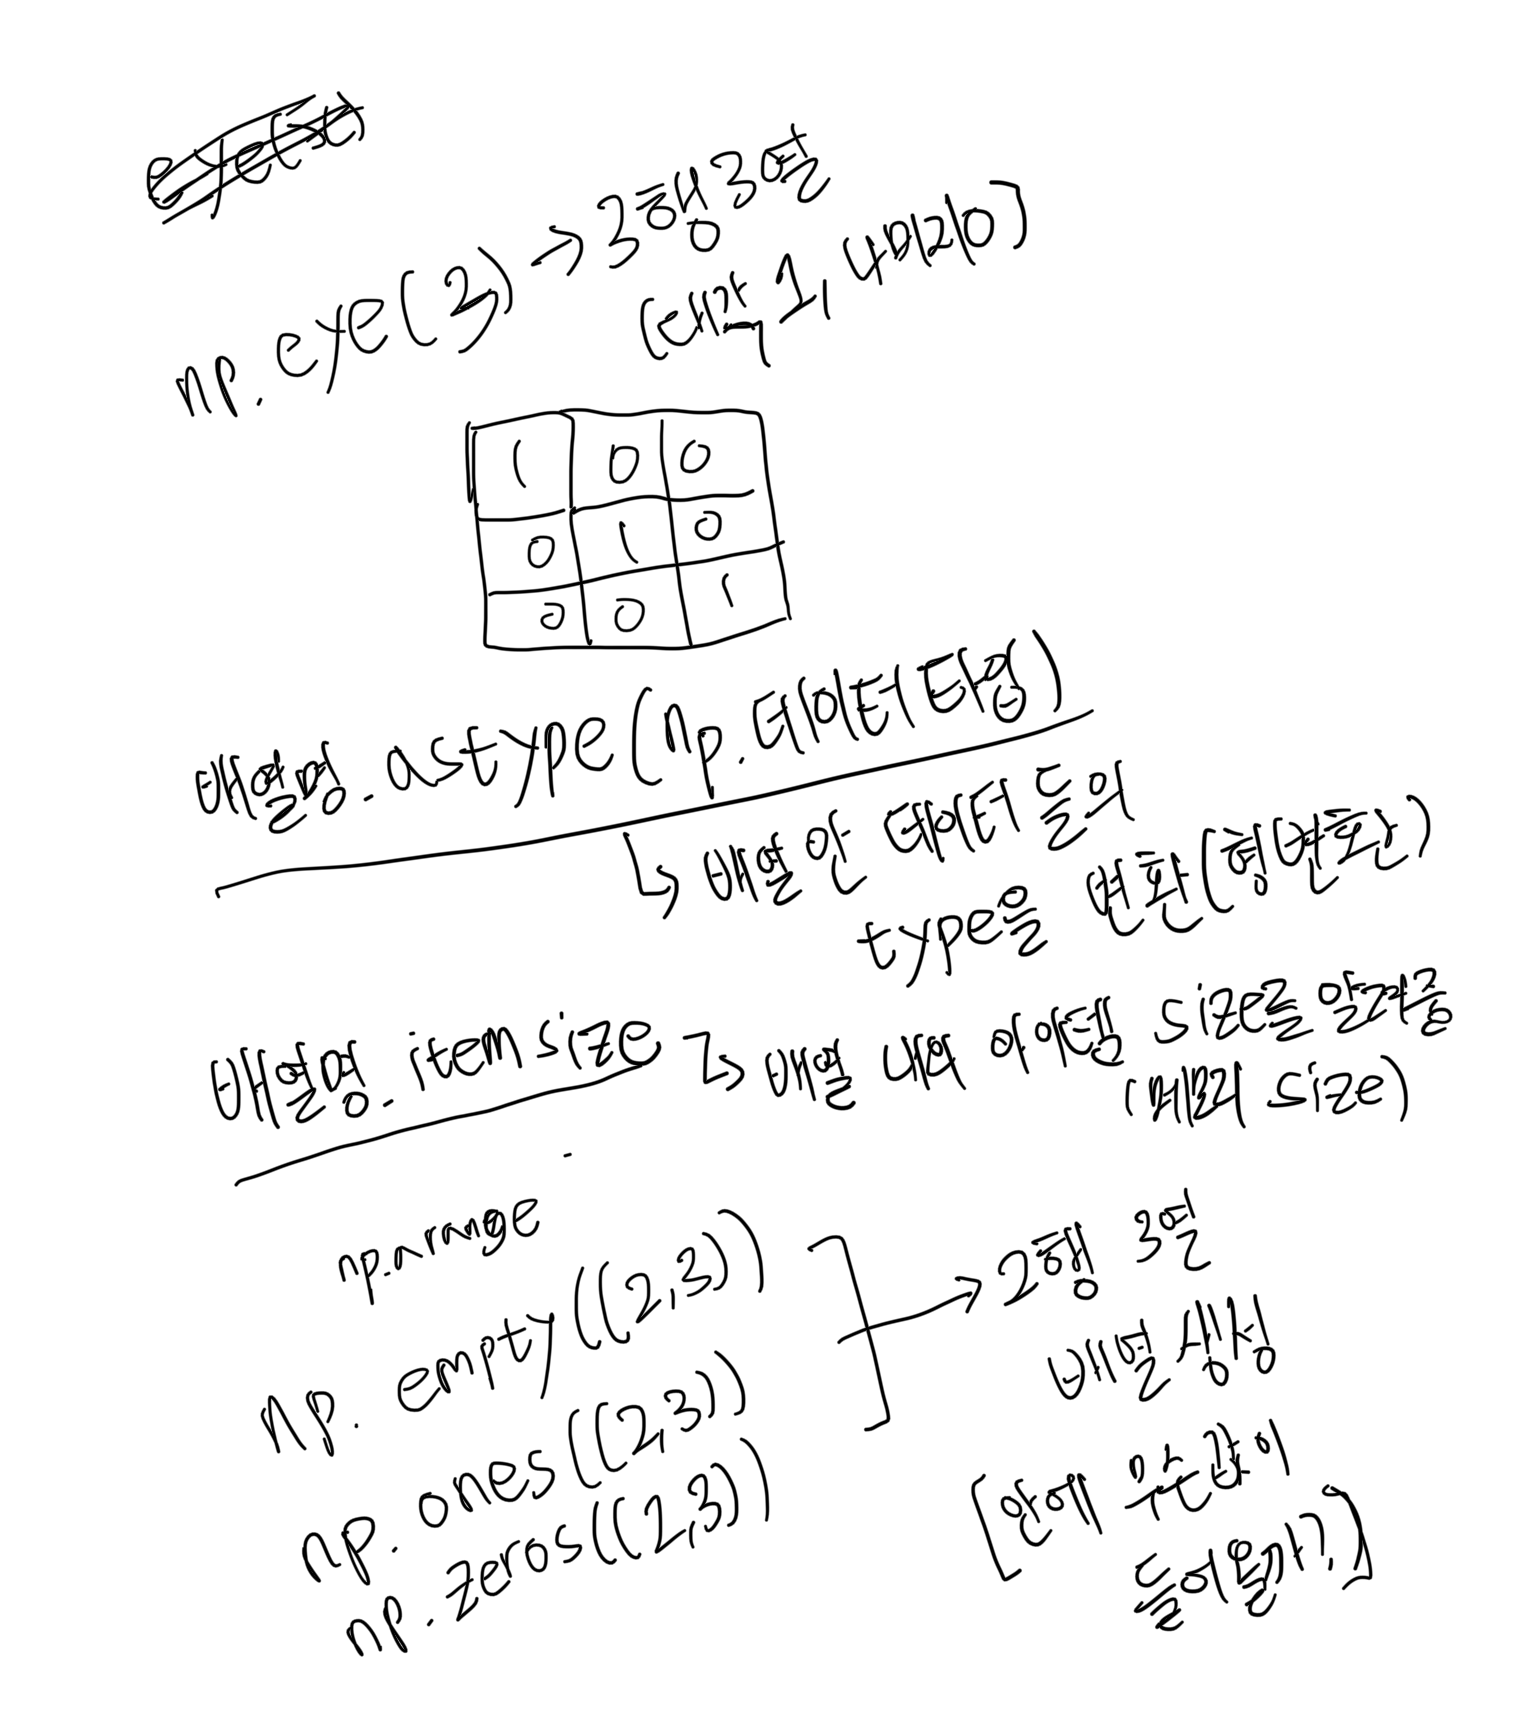 np.eye(3) → 3행 3열
(대각 1, 나머지 0)
1 0 0
0 1 0
0 0 1
배열명.astype(np.데이터타입)
↳ 배열 안 데이터 들의
type을 변환(형변환)
배열명.itemsize ↳ 배열 내의 아이템 size를 알려줌
(메모리 size)
np.arange
np.empty((2,3))
np.ones((2,3))
np.zeros((2,3))
→ 2행 3열
배열 생성
[안에 무슨값이
들어올까?]